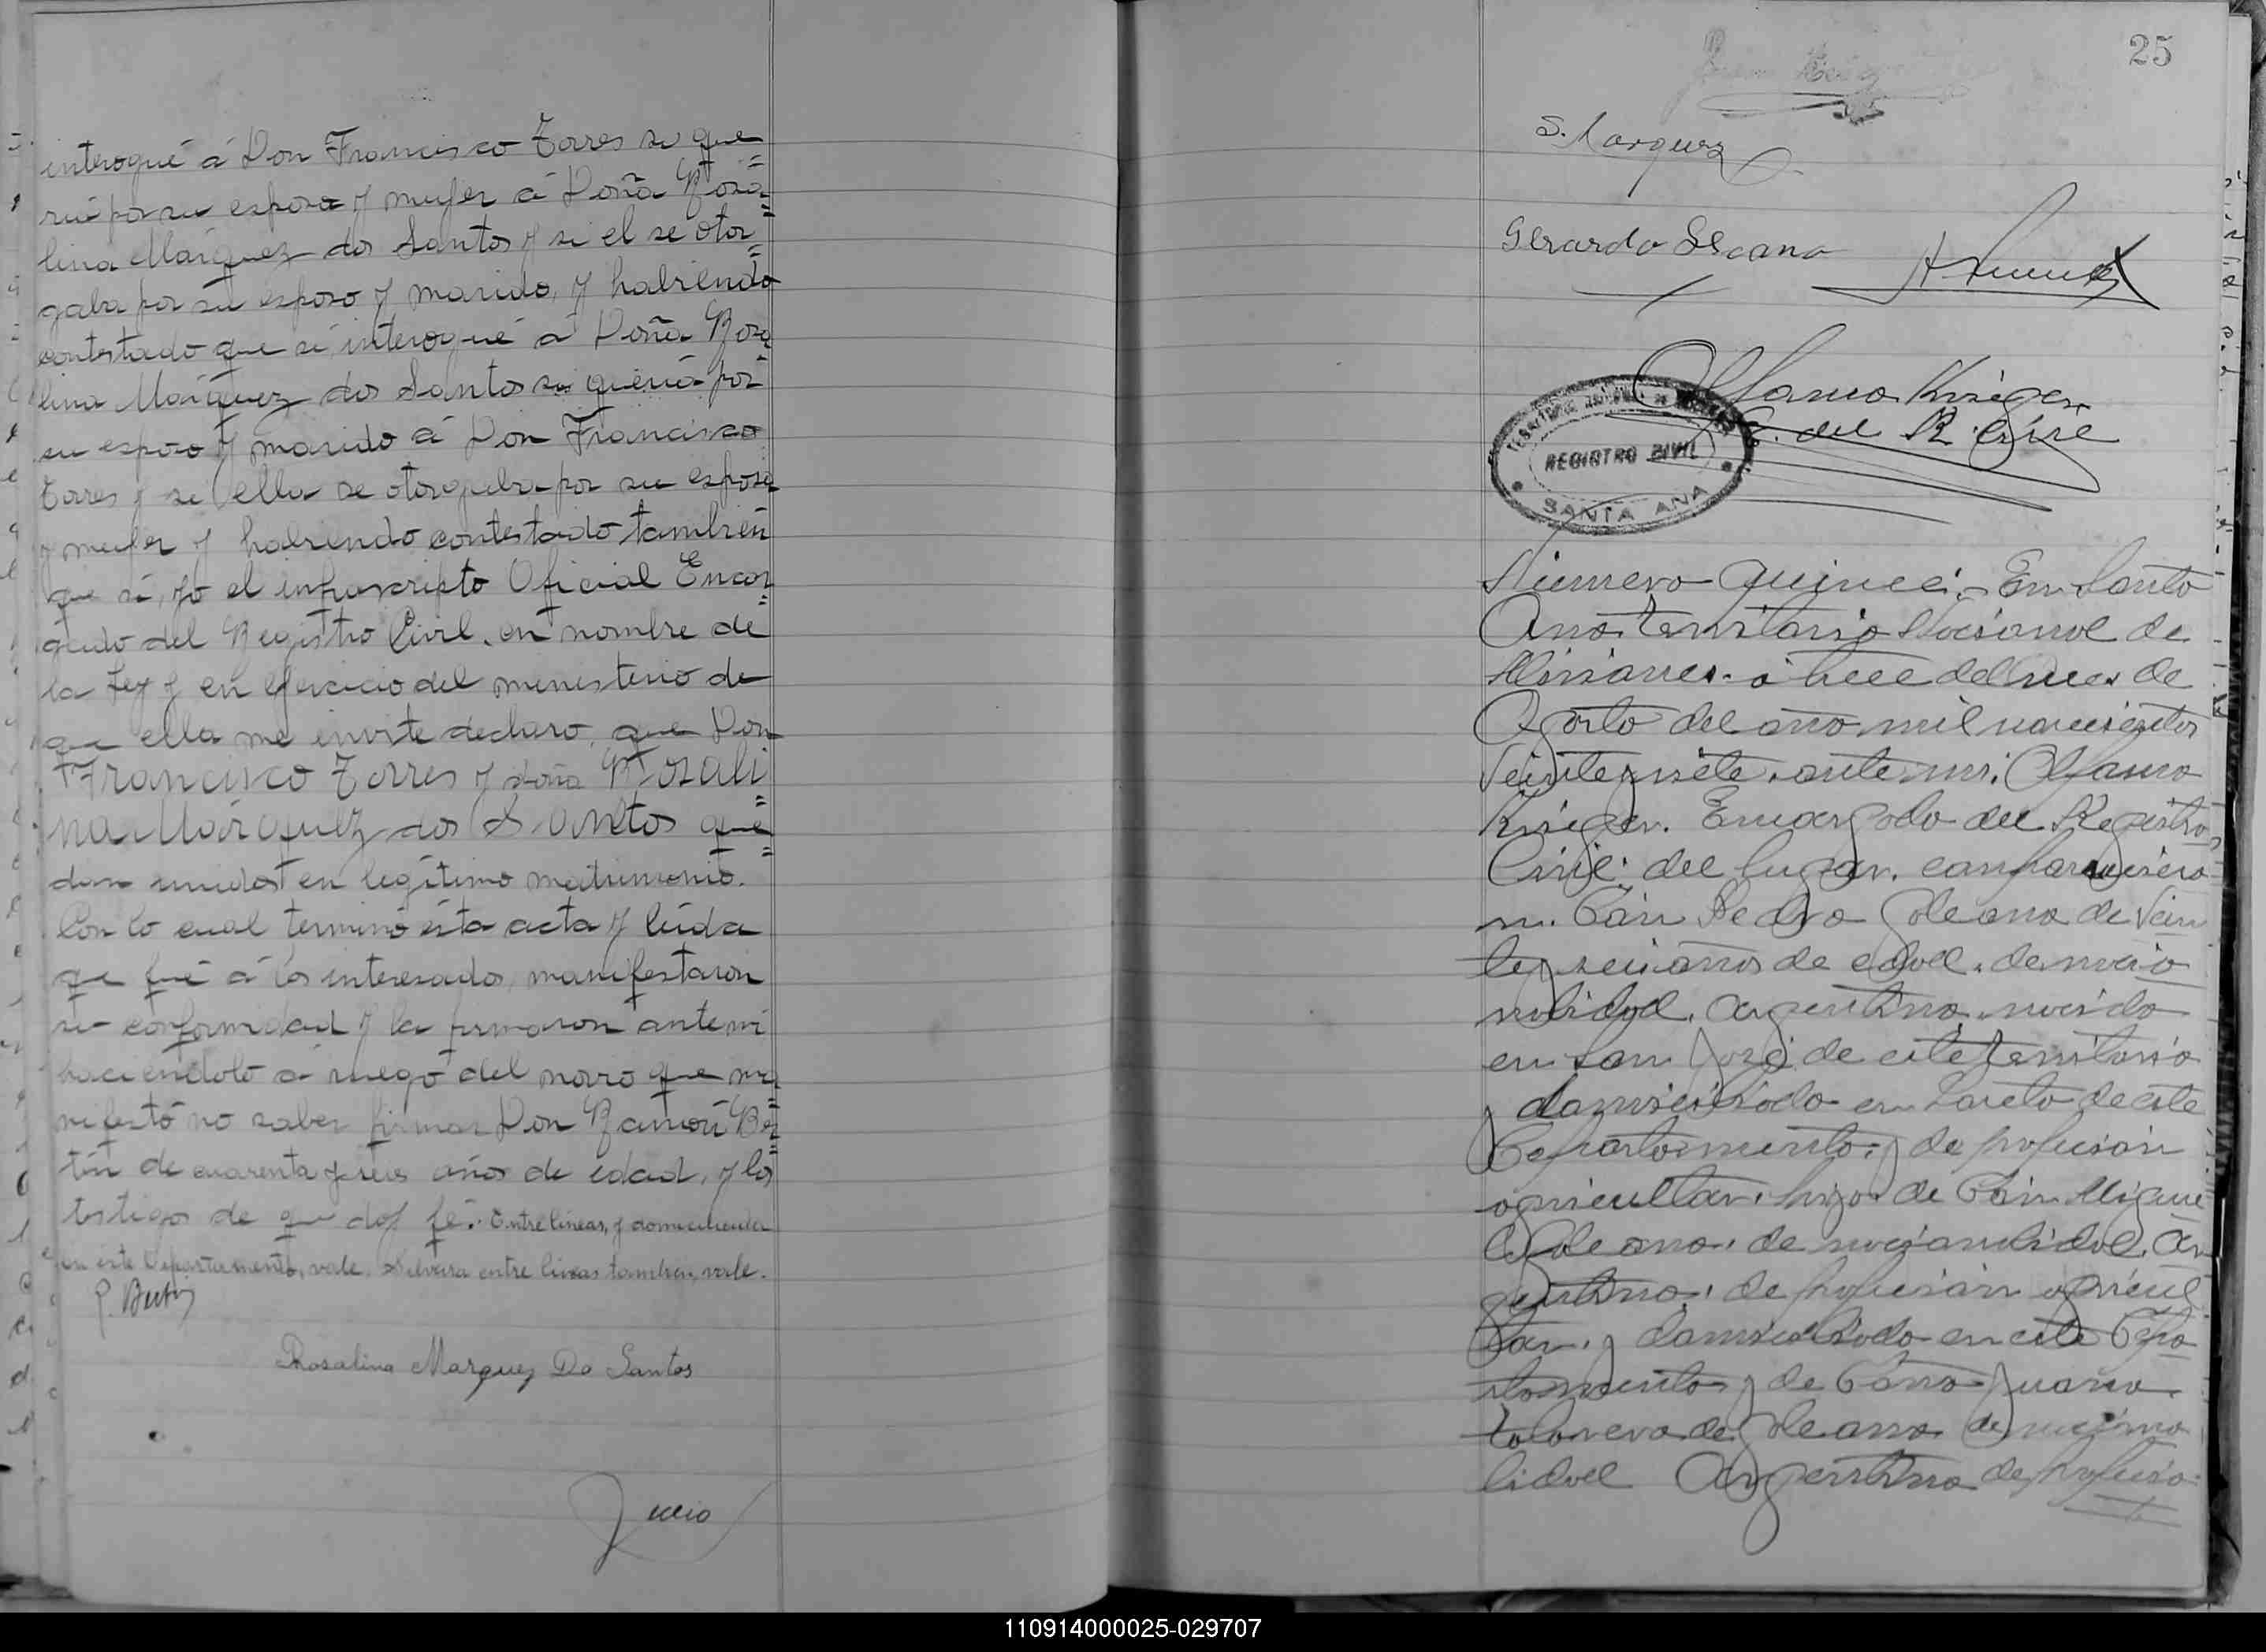 interogué á Don Francisco Torres si que=
riá por su esposa y mujer á Doña Rosa=
lina Márquez dos Santos y si el se otor=
gaba por su esposo y marido, y habiendo
contestado que si, interogué á Doña Rosa=
lina Márquez dos Santos si queriá por
su esposo y marido á Don Francisco
Torres y si ella se otorgaba por su esposa
y mujer y habiendo contestado también
que si, yo el infrascripto Oficial Encar=
gado del Registro Civil, en nombre de
la Ley y en ejercicio del menesterio de
que ella me enviste declaro, que Don
Francisco Torres y doña Rosali=
na Márquez dos Santos que=
dan unidos en legítimo matrimonio.
Con lo cual terminó ésta acta y leida
que fué á los interesados, manifestaron
su conformidad y la firmaron ante mi
haciéndolo á ruego del novio que ma=
nifestó no saber firmar Don Ramón Ber=
tín de cuarenta y seis años de edad, y los
testigos de que doy fé. Entre lineas, y domiciliada
en este Departamento, vale. Silveira entre lineas tambien, vale.
R. Bertín
Rosalina Marquez Do Santos
Julio
25
S. Marquez
Gerardo Seano
Alfanio Krieger
E. del R. Civil
TERRITORIO NACIONAL DE MISIONES
REGISTRO CIVIL
SANTA ANA
Número quince. En Santa
Ana, territorio Nacional de
Misiones, a trece del mes de
Agosto del año mil novecientos
Veinte y siete, ante mi: Alfanio
Krieger. Encargado del Registro
Civil del lugar, compareciero
n. Don Pedro Goleano de Vein
te y seis años de edad, de nacio
nalidad, argentino, nacido
en San José de este Territorio
y domiciliado en Loreto de este
Departamento, y de profesión
agricultor, hijo de Don Migue
l Goleano, de nacionalidad, Ar
gentino, de profesión agricul
tor, y domiciliado en este Depa
rtamento y de Doña Juana
Talavera de Goleano de naciona
lidad Argentina de profesio